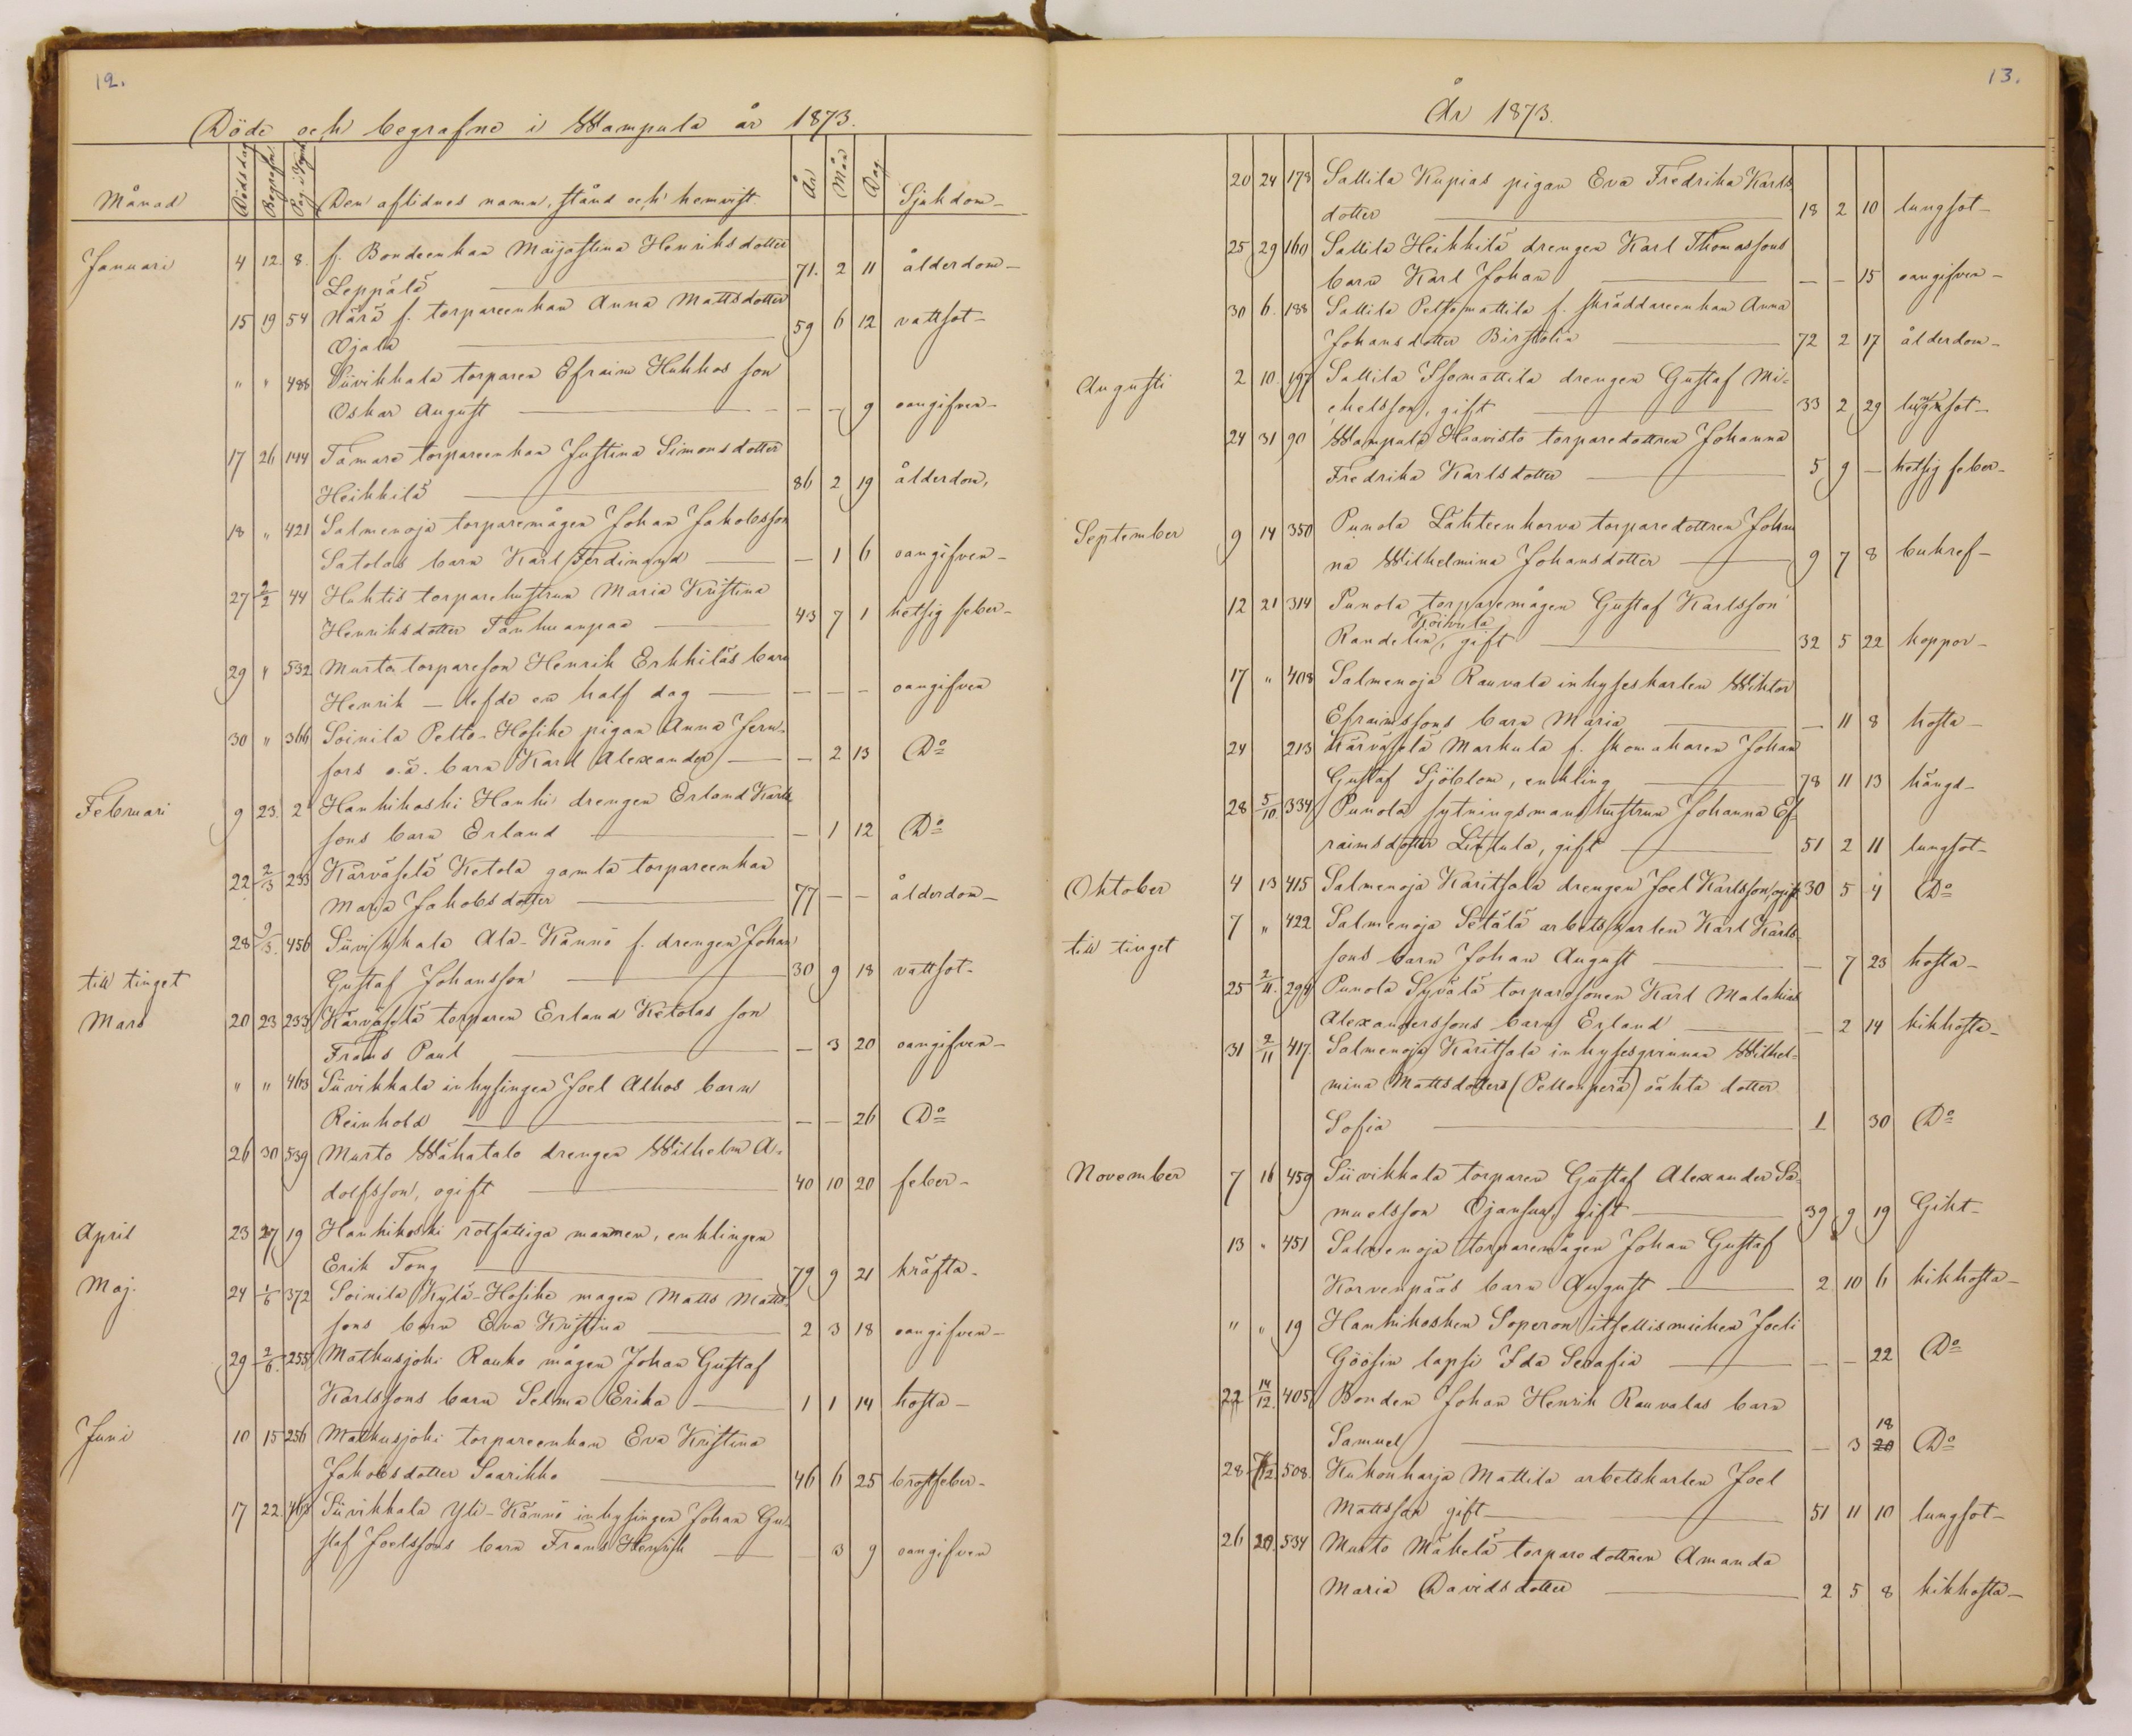 12.
Döde och begrafne i Wampula år 1873.
Månad Dödsdag Begrafn. Pag. i Kyrkb. Den aflidnes namn, stånd och hemvist. År Mån Dag Sjukdom
Januari 4 12. 8. f. Bondeenkan Maijastina Henriksdotter
Leppälä 71. 2 11 ålderdom
15 19 54 f. torpareenkan Anna Mattsdotter
Ojala 59 6 12 vattsot
" " 488 Siivikkala torparen Efraim Huhkos son
Oskar August — — 9 oangifven
17 26 144 Tamare torpareenkan Justina Simonsdotter
Heikkilä 86 2 19 ålderdom,
18 " 421 Salmenoja torparemågen Johan Jakobsson
Satolas barn Karl Ferdinand — 1 6 oangifven
27 2/2 44 Huhtis torparehustrun Maria Kristina
Henriksdotter Tanhuanpaa 43 7 1 hetsig feber
29 " 532 Murto torpareson Henrik Erkkiläs barn
Henrik — lefde en half dag — — — oangifven
30 " 366 Soinila Pelto-Hosike pigan Anna Fern-
fors o.ä. barn Karl Alexander — 2 13 Do
Februari 9 23. 2 Hanhikoski Hanhi drengen Erland Karls
sons barn Erland — 1 12 Do
22 2/3 233 Kärväselä Ketola gamla torpareenkan
Maria Jakobsdotter 77 — — ålderdom
28 9/3. 456 Siivikkala Ala-Kännö f. drengen Johan
Gustaf Johansson 30 9 18 vattsot
till tinget
Mars 20 23 233 Kärväselä torparen Erland Ketolas son
Frans Paul — 3 20 oangifven
" " 463 Siivikkala inhysingen Joel Alhos barn
Reinhold — — 26 Do
26 30 539 Murto Wähatalo drengen Wilhelm A-
dolfsson, ogift 40 10 20 feber
April 23 27 19 Hanhikoski rotfattiga mannen, enklingen
Erik Tong 79 9 21 kräfta
Maj. 24 1/6 372 Soinila Kylä-Hosike magen Matts Matts-
sons barn Eva Kristina 2 3 18 oangifven
29 2/6. 255 Matkusjoki Rauko mågen Johan Gustaf
Karlssons barn Selma Erika 1 1 14 hosta
Juni 10 15 256 Matkusjoki torpareenkan Eva Kristina
Jakobsdotter Saarikko 46 6 25 bröstfeber
17 22. 463 Siivikkala Yli-Kännö inhysingen Johan Gu-
staf Joelssons barn Frans Henrik — 3 9 oangifven
13.
År 1873.
20 24 178 Sallila Kupias pigan Eva Fredrika Karls
dotter 18 2 10 lungsot
25 29 160 Sallila Heikkilä drengen Karl Thomassons
barn Karl Johan — — 15 oangifven
30 6. 188 Sallila Peltomattila f. skräddareenkan Anna
Johansdotter 72 2 17 ålderdom
Augusti 2 10. 197 Sallila Isomattila drengen Gustaf Mi-
chelsson, gift 33 2 29 lungsot
24 31 90 Wampula Haavisto torparedottren Johanna
Fredrika Karlsdotter 5 9 — hetsig feber
September 9 14 350 Punola Lähteenkorva torparedottren Johan
na Wilhelmina Johansdotter 9 7 8 bukref
12 21 314 Punola torparemågen Gustaf Karlsson
Koivula
Randelin, gift 32 5 22 koppor
17 " 408 Salmenoja Rauvala inhyseskarlen Wiktor
Efraimssons barn Maria — 11 8 hosta
24 213 Kärväselä Markula f. skomakaren Johan
Gustaf Sjöblom, enkling 78 11 13 hängd
28 5/10. 334 Punola sytningsmans hustrun Johanna Ef-
raimsdotter Lintula, gift 51 2 11 lungsot
Oktober 4 13 415 Salmenoja Karitsala drengen Joel Karlsson, ogift 30 5 4 Do
7 " 422 Salmenoja Setälä arbetskarlen Karl Karls-
till tinget
sons barn Johan August — 7 23 hosta
25 2/11. 294 Punola Syvälä torparesonen Karl Malakias
Alexanderssons barn Erland — 2 14 kikhosta
31 2/11 417. Salmenoja Karitsala inhysesqvinnan Wilhel-
mina Mattsdotters (Pellonperä) oäkta dotter
Sofia 1 30 Do
November 7 16 459 Siivikkala torparen Gustaf Alexander Sa-
muelsson Ojansuu, gift 39 9 19 Gikt
13 " 451 Salmenoja torparemågen Johan Gustaf
Korvenpääs barn August 2 10 6 kikhosta
" " 19 Hanhikosken Soperon itsellismiehen Joeli
Göösin lapsi Ida Serafia — — 22 Do
22 14/12. 405 Bonden Johan Henrik Rauvalas barn
18
Samuel — 3 20 Do
28 /12. 508. Kukonharja Mattila arbetskarlen Joel
Mattsson gift 51 11 10 lungsot
26 29. 534 Murto Mäkelä torparedottren Amanda
Maria Davidsdotter 2 5 8 kikhosta